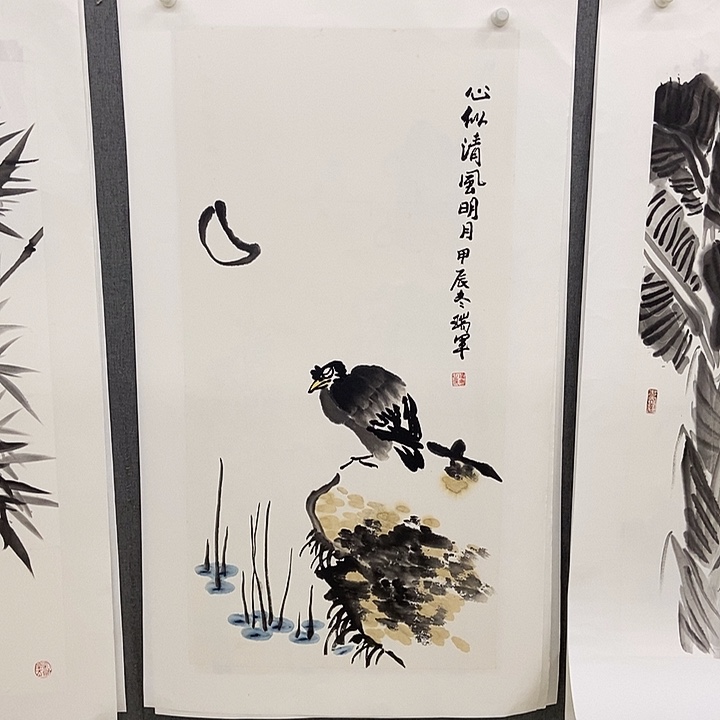 心似清風明月甲辰冬瑞軍